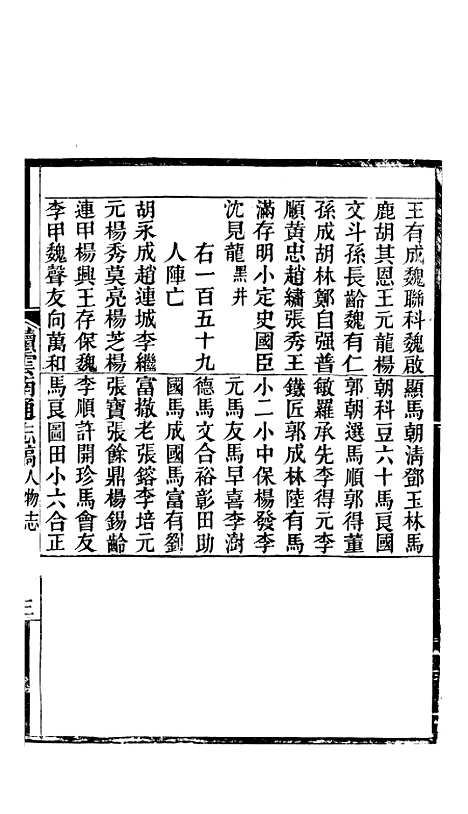 王有成魏聯科魏啟顯馬朝清鄧玉林馬
鹿胡其恩王元龍楊朝科豆六十馬良國
文斗孫長齡魏有仁郭朝選馬順郭得董
孫成胡林鄭自强普敏羅承先李得元李
順黄忠趙繡張秀王鐵匠郭成林陸有馬
滿存明小定史國臣小二小中保楊發李
沈見龍黑井元馬友馬早喜李澍
右一百五十九德馬文合裕彰田助
人陣亡國馬成國馬富有劉
胡永成趙連城李繼富撤老張鎔李培元
元楊秀莫亮楊芝楊張寶張餘鼎楊錫齡
連甲楊興王存保魏李順許開珍馬會友
李甲魏聲友向萬和馬良圖田小六合正
續雲南通志稿人物志
三